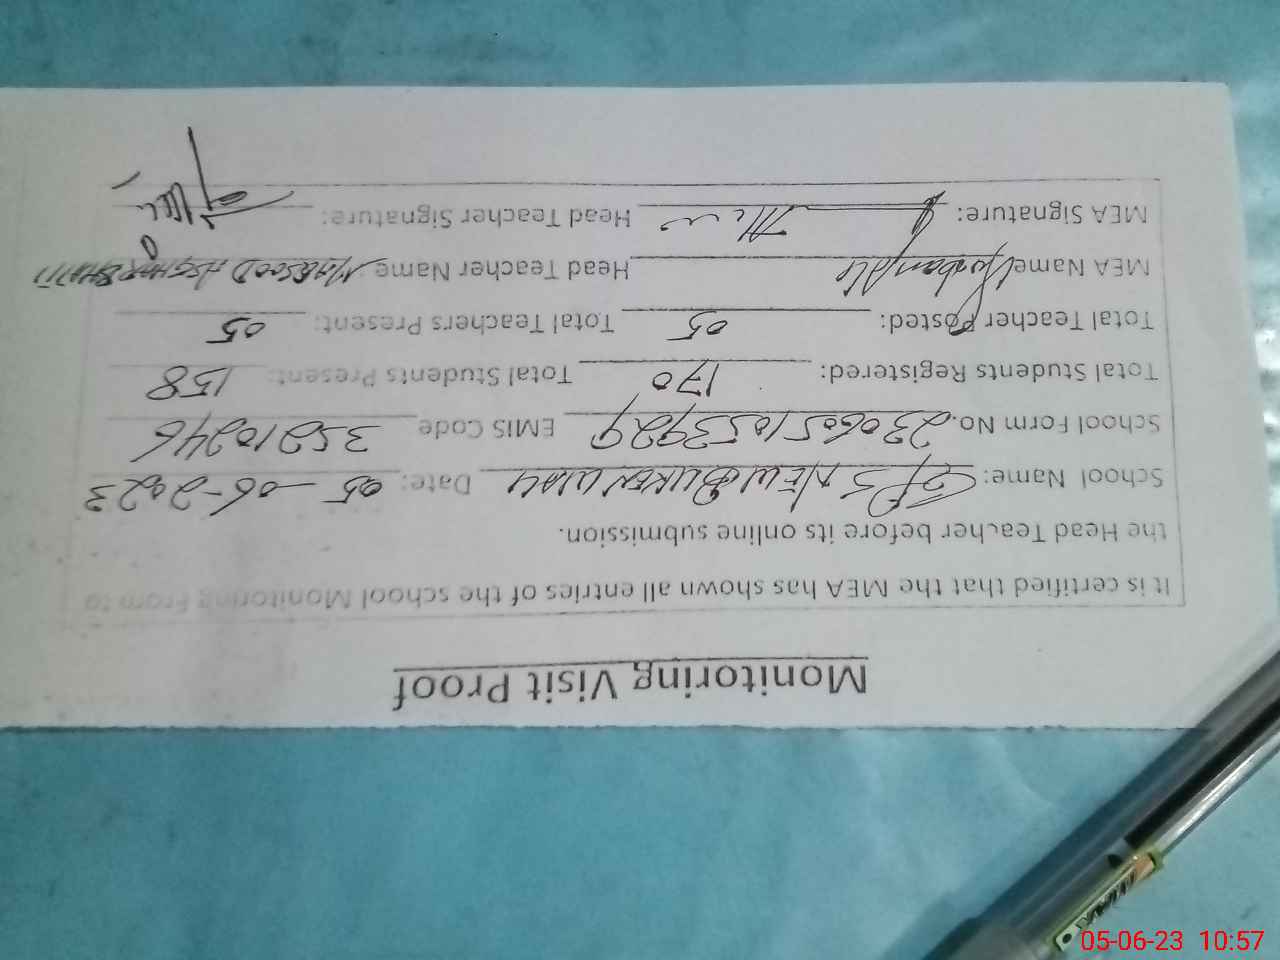 Monitoring Visit Proof
It is certified that the MEA has shown all entries of the school Monitoring From to
the Head Teacher before its online submission.
School Name: GPS NEW Date: 05-06-2023
School Form No. 23060510539729 EMIS Code 35210246
Total Students Registered: 170 Total Students Present: 158
Total Teacher Posted: 05 Total Teachers Present: 05
MEA Name Qurban Ali Head Teacher Name MAQSOOD ASGHAR BHATTI
MEA Signature: Head Teacher Signature:
05-06-23 10:57